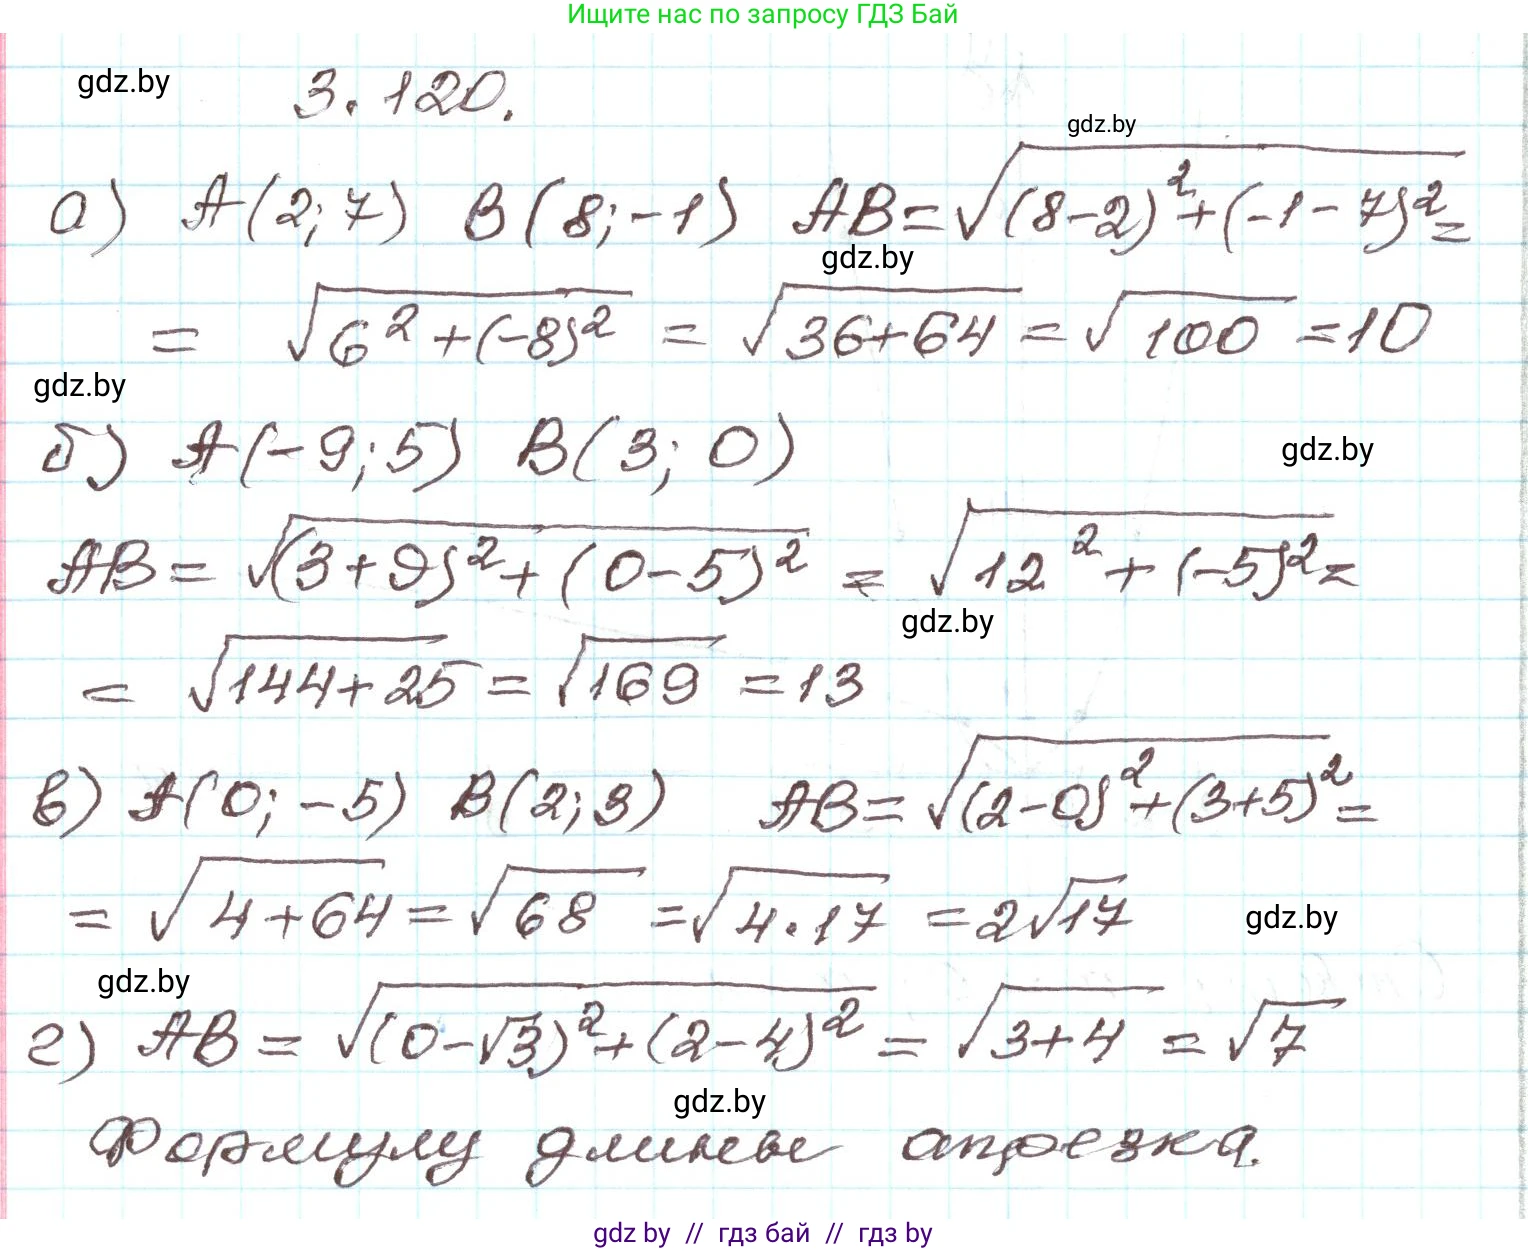 Ищите нас по запросу ГДЗ Бай
gdz.by 3.120.
gdz.by
а) A(2; 7) B(8; -1) AB = √((8-2)² + (-1-7)²) =
gdz.by
= √(6² + (-8)²) = √(36+64) = √100 = 10
gdz.by
б) A(-9; 5) B(3; 0)
gdz.by
AB = √((3+9)² + (0-5)²) = √(12² + (-5)²) =
gdz.by
= √(144+25) = √169 = 13
в) A(0; -5) B(2; 3) AB = √((2-0)² + (3+5)²) =
= √(4+64) = √68 = √(4·17) = 2√17
gdz.by
gdz.by
г) AB = √((0-√3)² + (2-4)²) = √(3+4) = √7
gdz.by
Формулу длины отрезка.
gdz by // гдз бай // гдз by